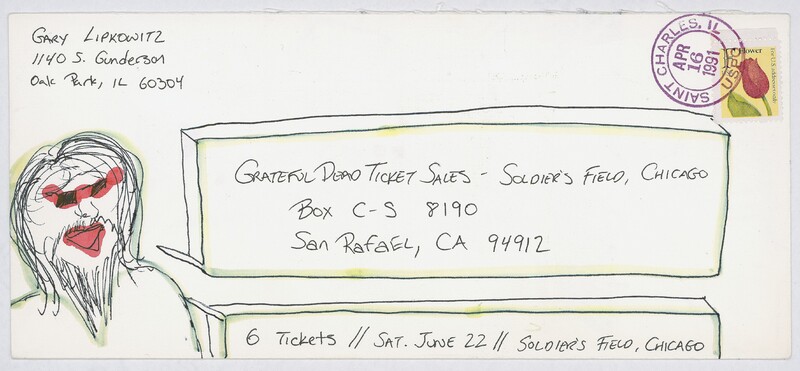 Gary Lipkowitz
1140 S. Gunderson
Oak Park, IL 60304
SAINT CHARLES, IL
APR
16
1991
USPO
Flower
For U.S. addresses only
Grateful Dead Ticket Sales - Soldier's Field, Chicago
Box C-S 8190
San Rafael, CA 94912
6 Tickets // Sat. June 22 // Soldier's Field, Chicago